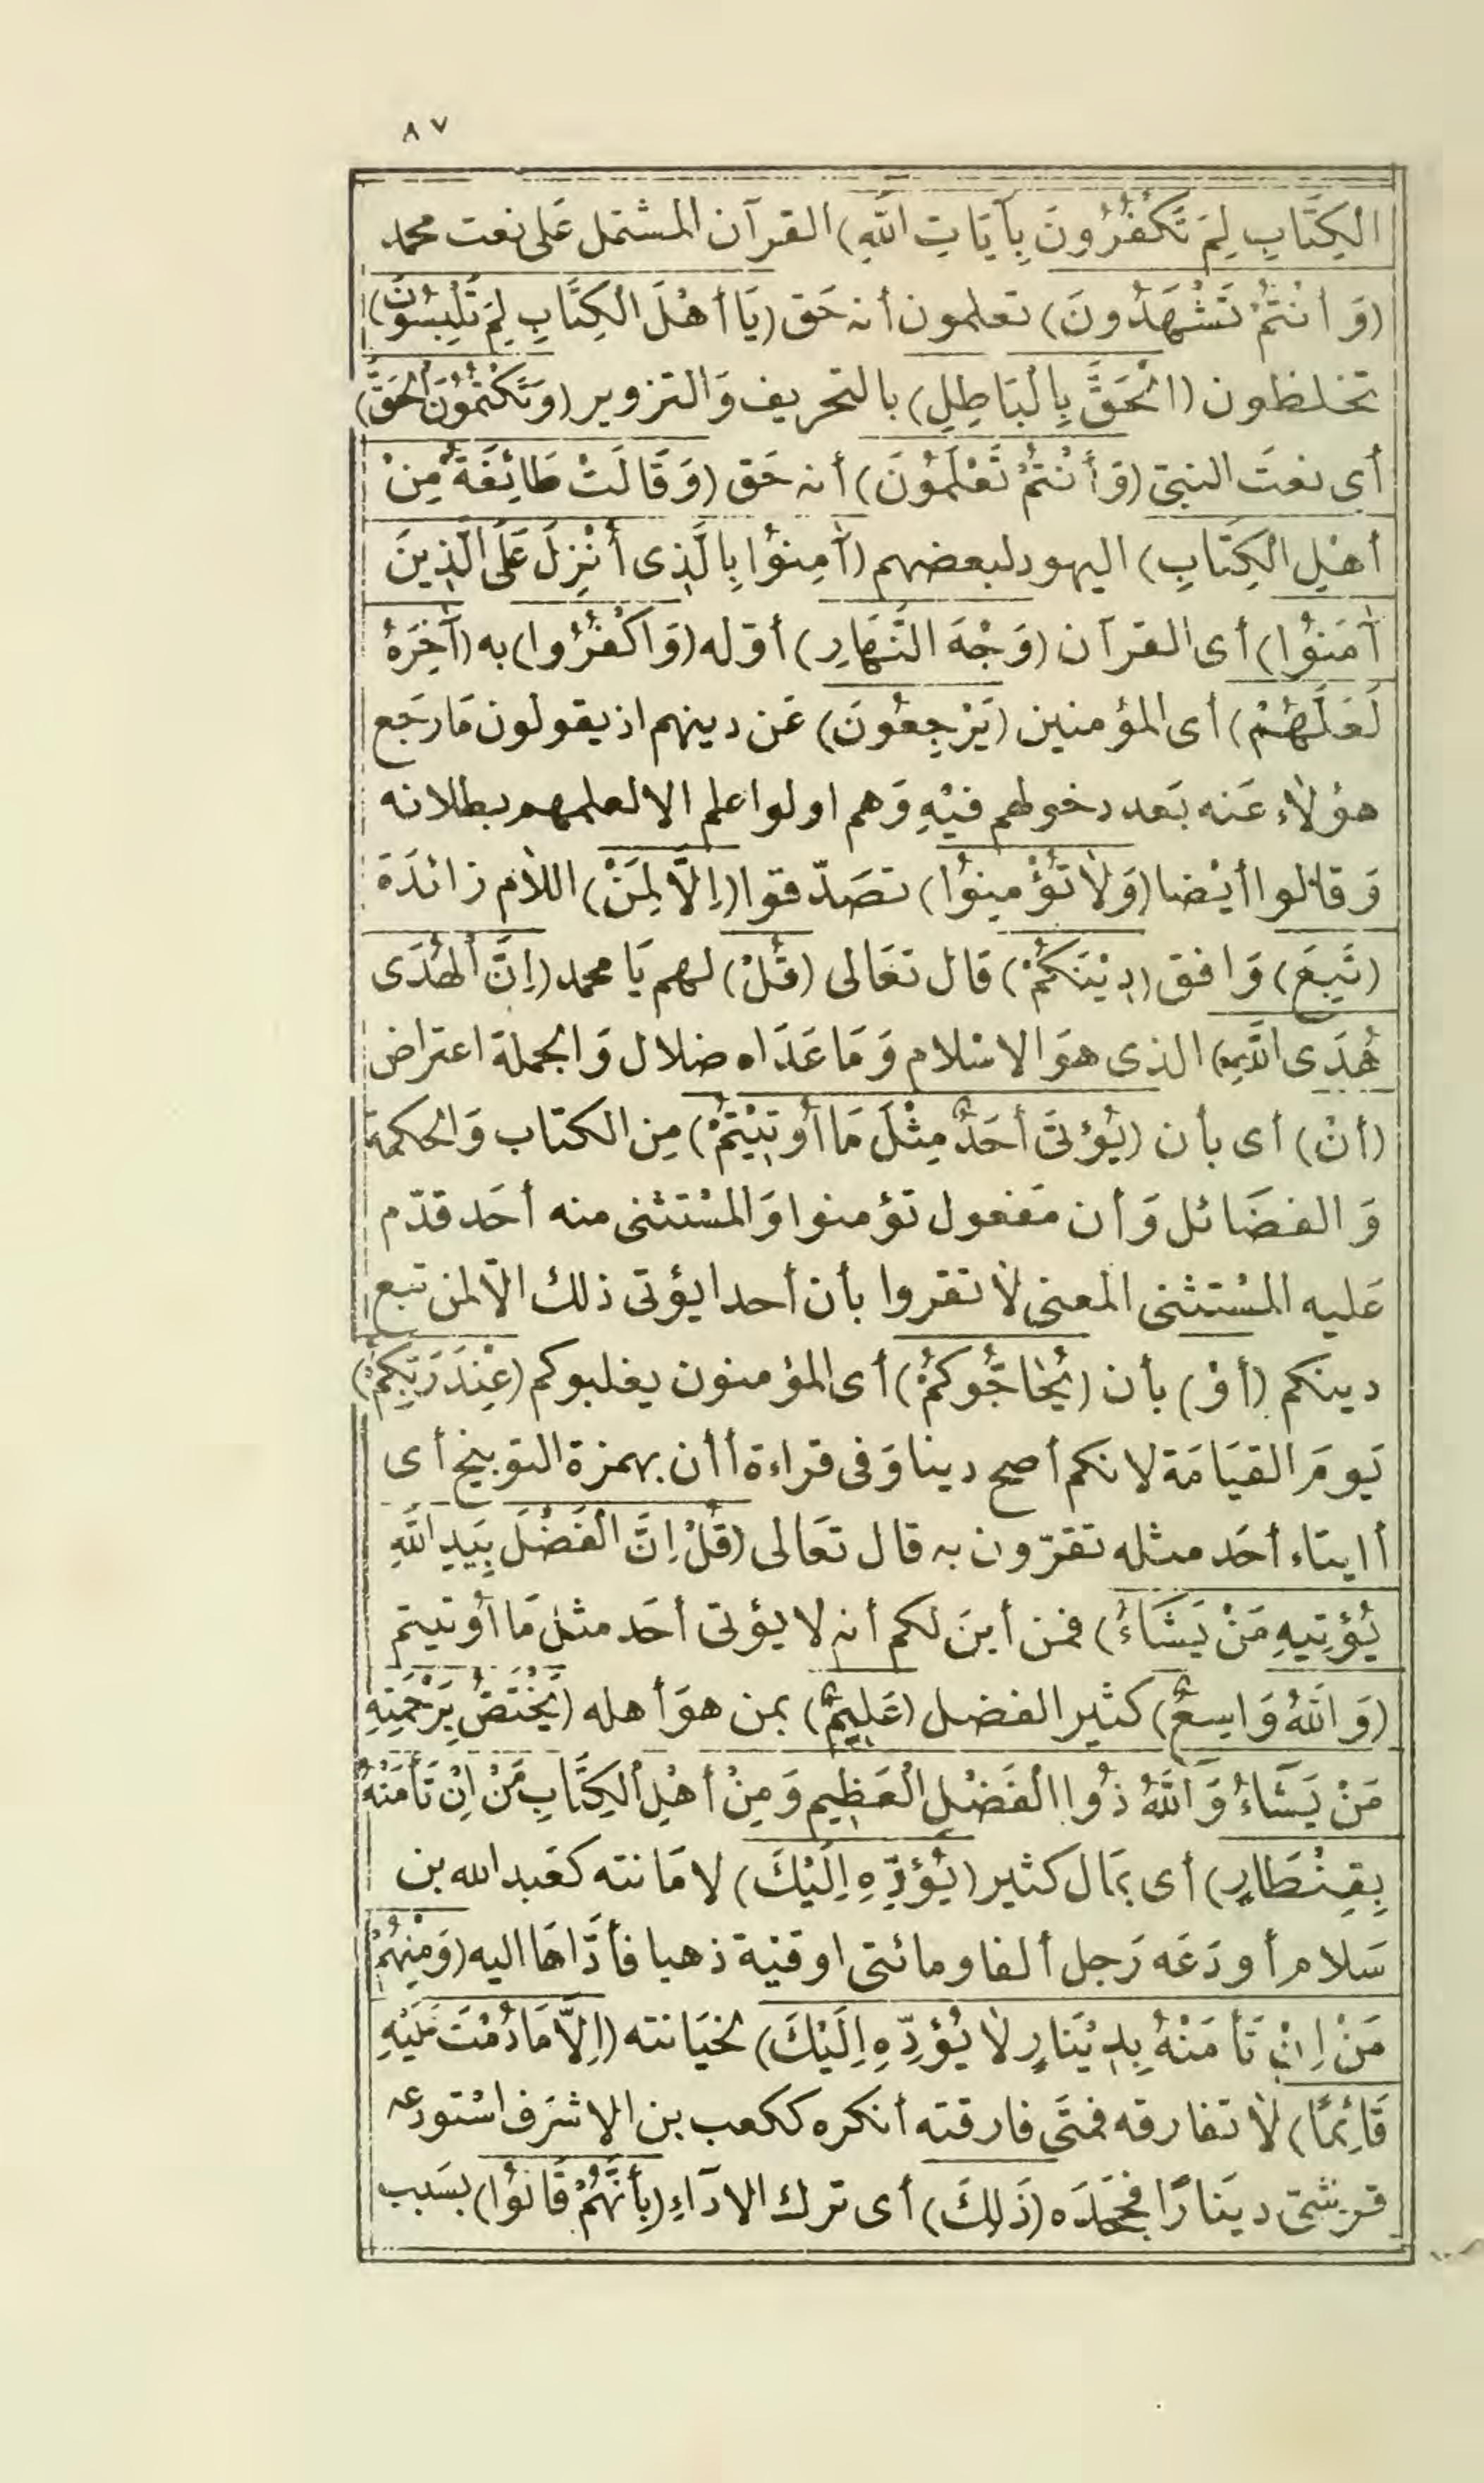 ٨٧
الْكِتَابِ لِمَ تَكْفُرُونَ بِآيَاتِ اللّٰهِ) القرآن المشتمل عَلى نعت محمد
(وَ أَنْتُمْ تَشْهَدُونَ) تعلمون أنه حَق (يَا أَهْلَ الْكِتَابِ لِمَ تَلْبِسُونَ)
تخلطون (الْحَقَّ بِالْبَاطِلِ) بالتحريف وَالتزوير (وَتَكْتُمُونَ الْحَقَّ)
أى نعتَ النبىّ (وَأَنْتُمْ تَعْلَمُونَ) أنه حَق (وَقَالَتْ طَائِفَةٌ مِنْ
أَهْلِ الْكِتَابِ) اليهود لبعضهم (آمِنُوا بِالَّذِى أُنْزِلَ عَلَى الَّذِينَ
آمَنُوا) أى القرآن (وَجْهَ النَّهَارِ) أوّله (وَاكْفُرُوا) به (آخِرَهُ
لَعَلَّهُمْ) أى المؤمنين (يَرْجِعُونَ) عَن دينهم اذ يقولون مَا رجَع
هؤلاء عَنه بَعد دخولهم فيْهِ وَهم اولوا علم الا لعلمهم بطلانه
وَقالوا أيْضا (وَلَا تُؤْمِنُوا) تصَدّقوا (إِلَّا لِمَنْ) اللام زائدَة
(تَبِعَ) وَافق (دِيْنَكُمْ) قال تعَالى (قُلْ) لهم يَا محمد (إِنَّ الْهُدَى
هُدَى اللّٰهِ) الذى هوَ الاسْلام وَمَا عَدَاه ضلال وَالجملة اعتراض
(أَنْ) أى بأن (يُؤْتَىٰ أَحَدٌ مِثْلَ مَا أُوتِيْتُمْ) مِن الكتاب وَالحكمة
وَالفضَائل وَأن مَفعول تؤمنوا وَالمسْتثنى منه أحَد قدّم
عَليه المسْتثنى المعنى لَا تقروا بأن أحدا يؤتى ذلك الّا لمن تبع
دينكم (أَوْ) بأن (يُحَاجُّوكُمْ) أى المؤمنون يغلبوكم (عِنْدَ رَبِّكُمْ)
يَومَ القيَامَة لانكم أصح دينا وَفى قراءة أأن بهمزة التوبيخ أى
أايتاء أحَد مثله تقرّون به قال تعَالى (قُلْ إِنَّ الْفَضْلَ بِيَدِ اللّٰهِ
يُؤْتِيهِ مَنْ يَشَاءُ) فمن أينَ لكم أنه لا يؤتى أحَد مثل مَا أوتيتم
(وَ اللّٰهُ وَاسِعٌ) كثير الفضل (عَلِيمٌ) بمن هوَ أهله (يَخْتَصُّ بِرَحْمَتِهِ
مَنْ يَشَاءُ وَ اللّٰهُ ذُوا الْفَضْلِ الْعَظِيمِ وَمِنْ أَهْلِ الْكِتَابِ مَنْ إِنْ تَأْمَنْهُ
بِقِنْطَارٍ) أى بمَال كثير (يُؤَدِّهِ إِلَيْكَ) لامَانته كعَبد الله بن
سَلام أودَعَه رَجل ألفا ومائتى اوقيْة ذهبا فأدَّاهَا اليه (وَمِنْهُمْ
مَنْ إِنْ تَأْمَنْهُ بِدِيْنَارٍ لَا يُؤَدِّهِ إِلَيْكَ) لخيَانته (إِلَّا مَا دُمْتَ عَلَيْهِ
قَائِمًا) لَا تفارقه فمتَى فارقته أنكره ككعب بن الاشرَف اسْتودعه
قرشىّ دينَارًا فجحَدَه (ذَلِكَ) أى ترك الادَآءِ (بِأَنَّهُمْ قَالُوا) بسَبب